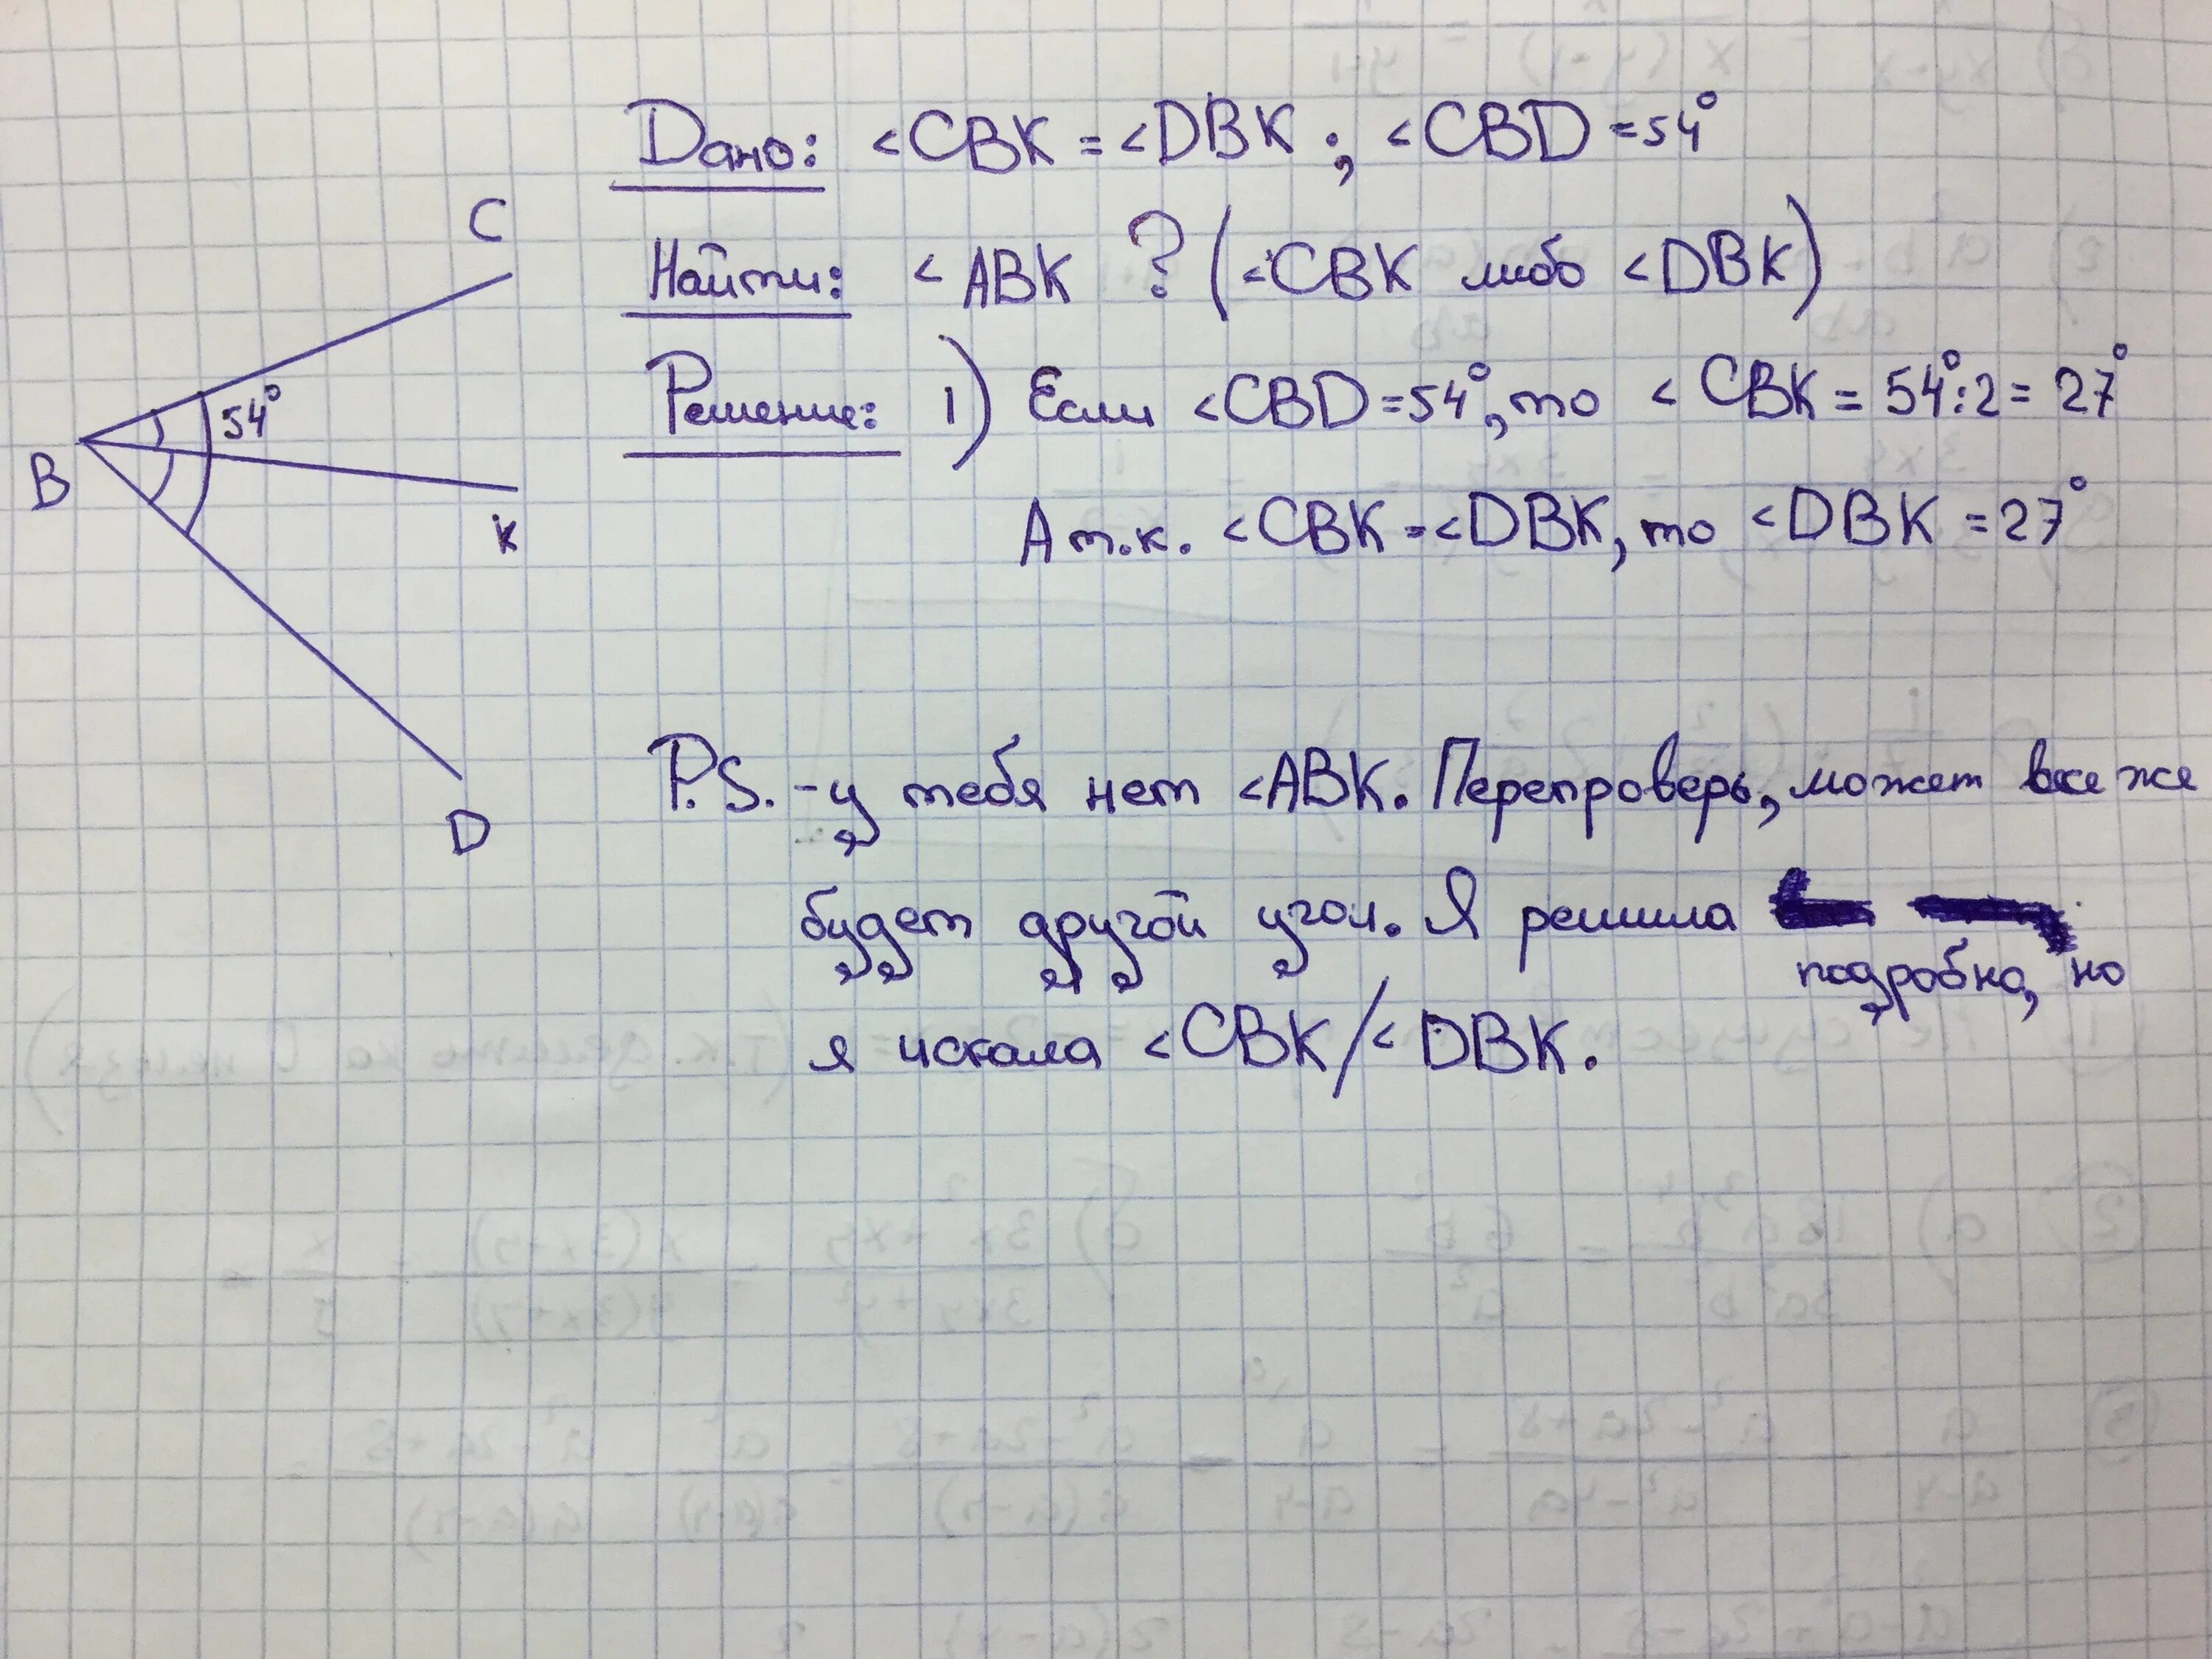 Дано: <CBK = <DBK ; <CBD = 54°
Найти: < ABK ? (<CBK либо <DBK)
Решение: 1) Если <CBD = 54°, то < CBK = 54° : 2 = 27°
А т.к. <CBK = <DBK, то <DBK = 27°
C
54°
B
K
D
P.S. - у тебя нет <ABK. Перепроверь, может все же
будет другой угол. Я решила
подробно, но
я искала <CBK / <DBK.